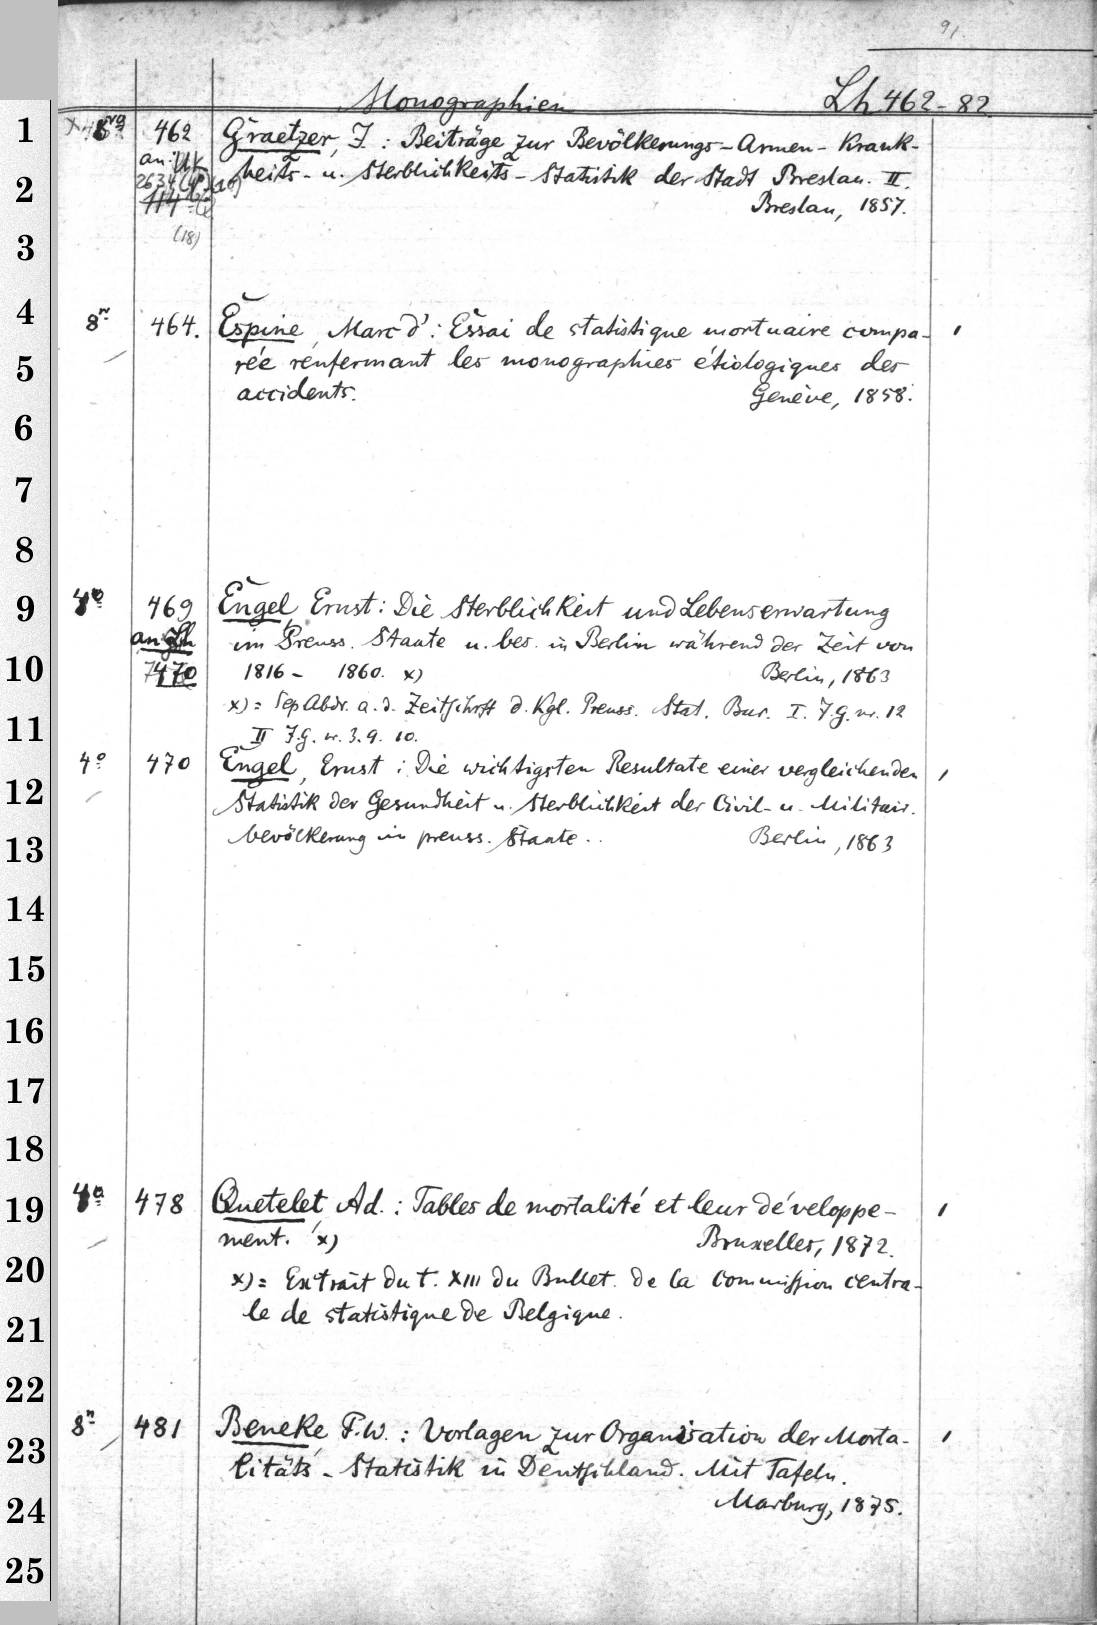 91.
Monographien Lh 462-82
1
8vo 462 Graetzer, J. : Beiträge zur Bevölkerungs- Armen- Krank-
an: Uk
2 2634 heits- u. Sterblichkeits- Statistik der Stadt Breslau. II.
114 Breslau, 1857.
(18)
3
4 8º 464. Espine, Marc d': Essai de statistique mortuaire compa-
5 rée renfermant les monographies étiologiques des
accidents. Genève, 1858.
6
7
8
9 4º 469 Engel, Ernst: Die Sterblichkeit und Lebenserwartung
an Lh im Preuss. Staate u. bes. in Berlin während der Zeit von
10 470 1816 - 1860. x) Berlin, 1863
x) = Sep Abdr. a. d. Zeitschrift d. Kgl. Preuss. Stat. Bur. I. J.G. nr. 12
11 II J.G. nr. 3. 9. 10.
12 4º 470 Engel, Ernst : Die wichtigsten Resultate einer vergleichenden
Statistik der Gesundheit u. Sterblichkeit der Civil- u. Militair.
13 bevölkerung im preuss. Staate .. Berlin, 1863
14
15
16
17
18
19 4º 478 Quetelet, Ad. : Tables de mortalité et leur développe-
20 ment. x) Bruxelles, 1872.
x) = Extrait du t. XIII du Bullet. de la Commission centra-
21 le de statistique de Belgique.
22
23 8º 481 Beneke, F.W. : Vorlagen zur Organisation der Morta-
litäts - Statistik in Deutschland. Mit Tafeln.
24 Marburg, 1875.
25